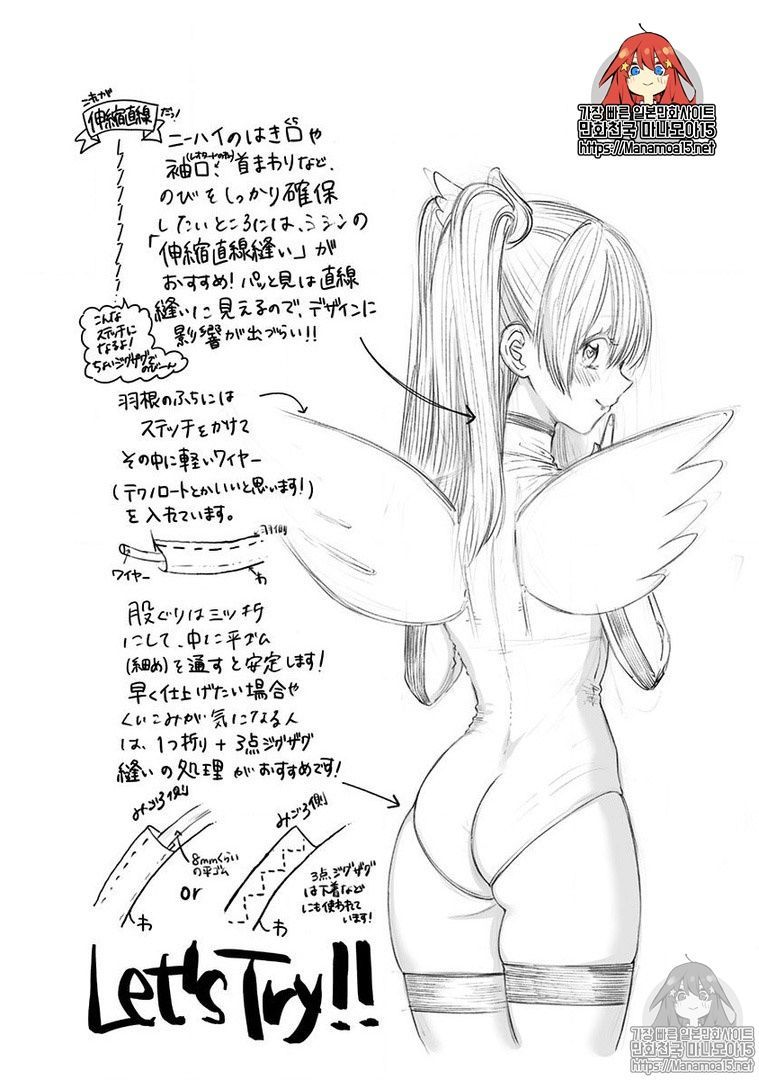 가장 빠른 일본만화사이트
만화천국 마나모아15
https://Manamoa15.net
これが
伸縮直線
だっ!
ニーハイのはき口や
くち
袖口、首まわりなど、
(レオタードの方)
のびをしっかり確保
したいところには、ミシンの
「伸縮直線縫い」が
おすすめ!パッと見は直線
縫いに見えるので、デザインに
影響が出づらい!!
こんな
ステッチに
なるよ!
ちょいジグザグで
のびーん
羽根のふちには
ステッチをかけて
その中に軽いワイヤー
(テクノロートとかいいと思います!)
を入れています。
羽側
ワイヤー
わ
股ぐりは三ツ折
にして、中に平ゴム
(細め)を通すと安定します!
早く仕上げたい場合や
くいこみが気になる人
は、1つ折り+3点ジグザグ
縫いの処理がおすすめです!
みごろ側
8mmくらい
の平ゴム
わ
or
みごろ側
3点ジグザグ
は下着など
にも使われて
います!
わ
Let's Try!!
가장 빠른 일본만화사이트
만화천국 마나모아15
https://Manamoa15.net